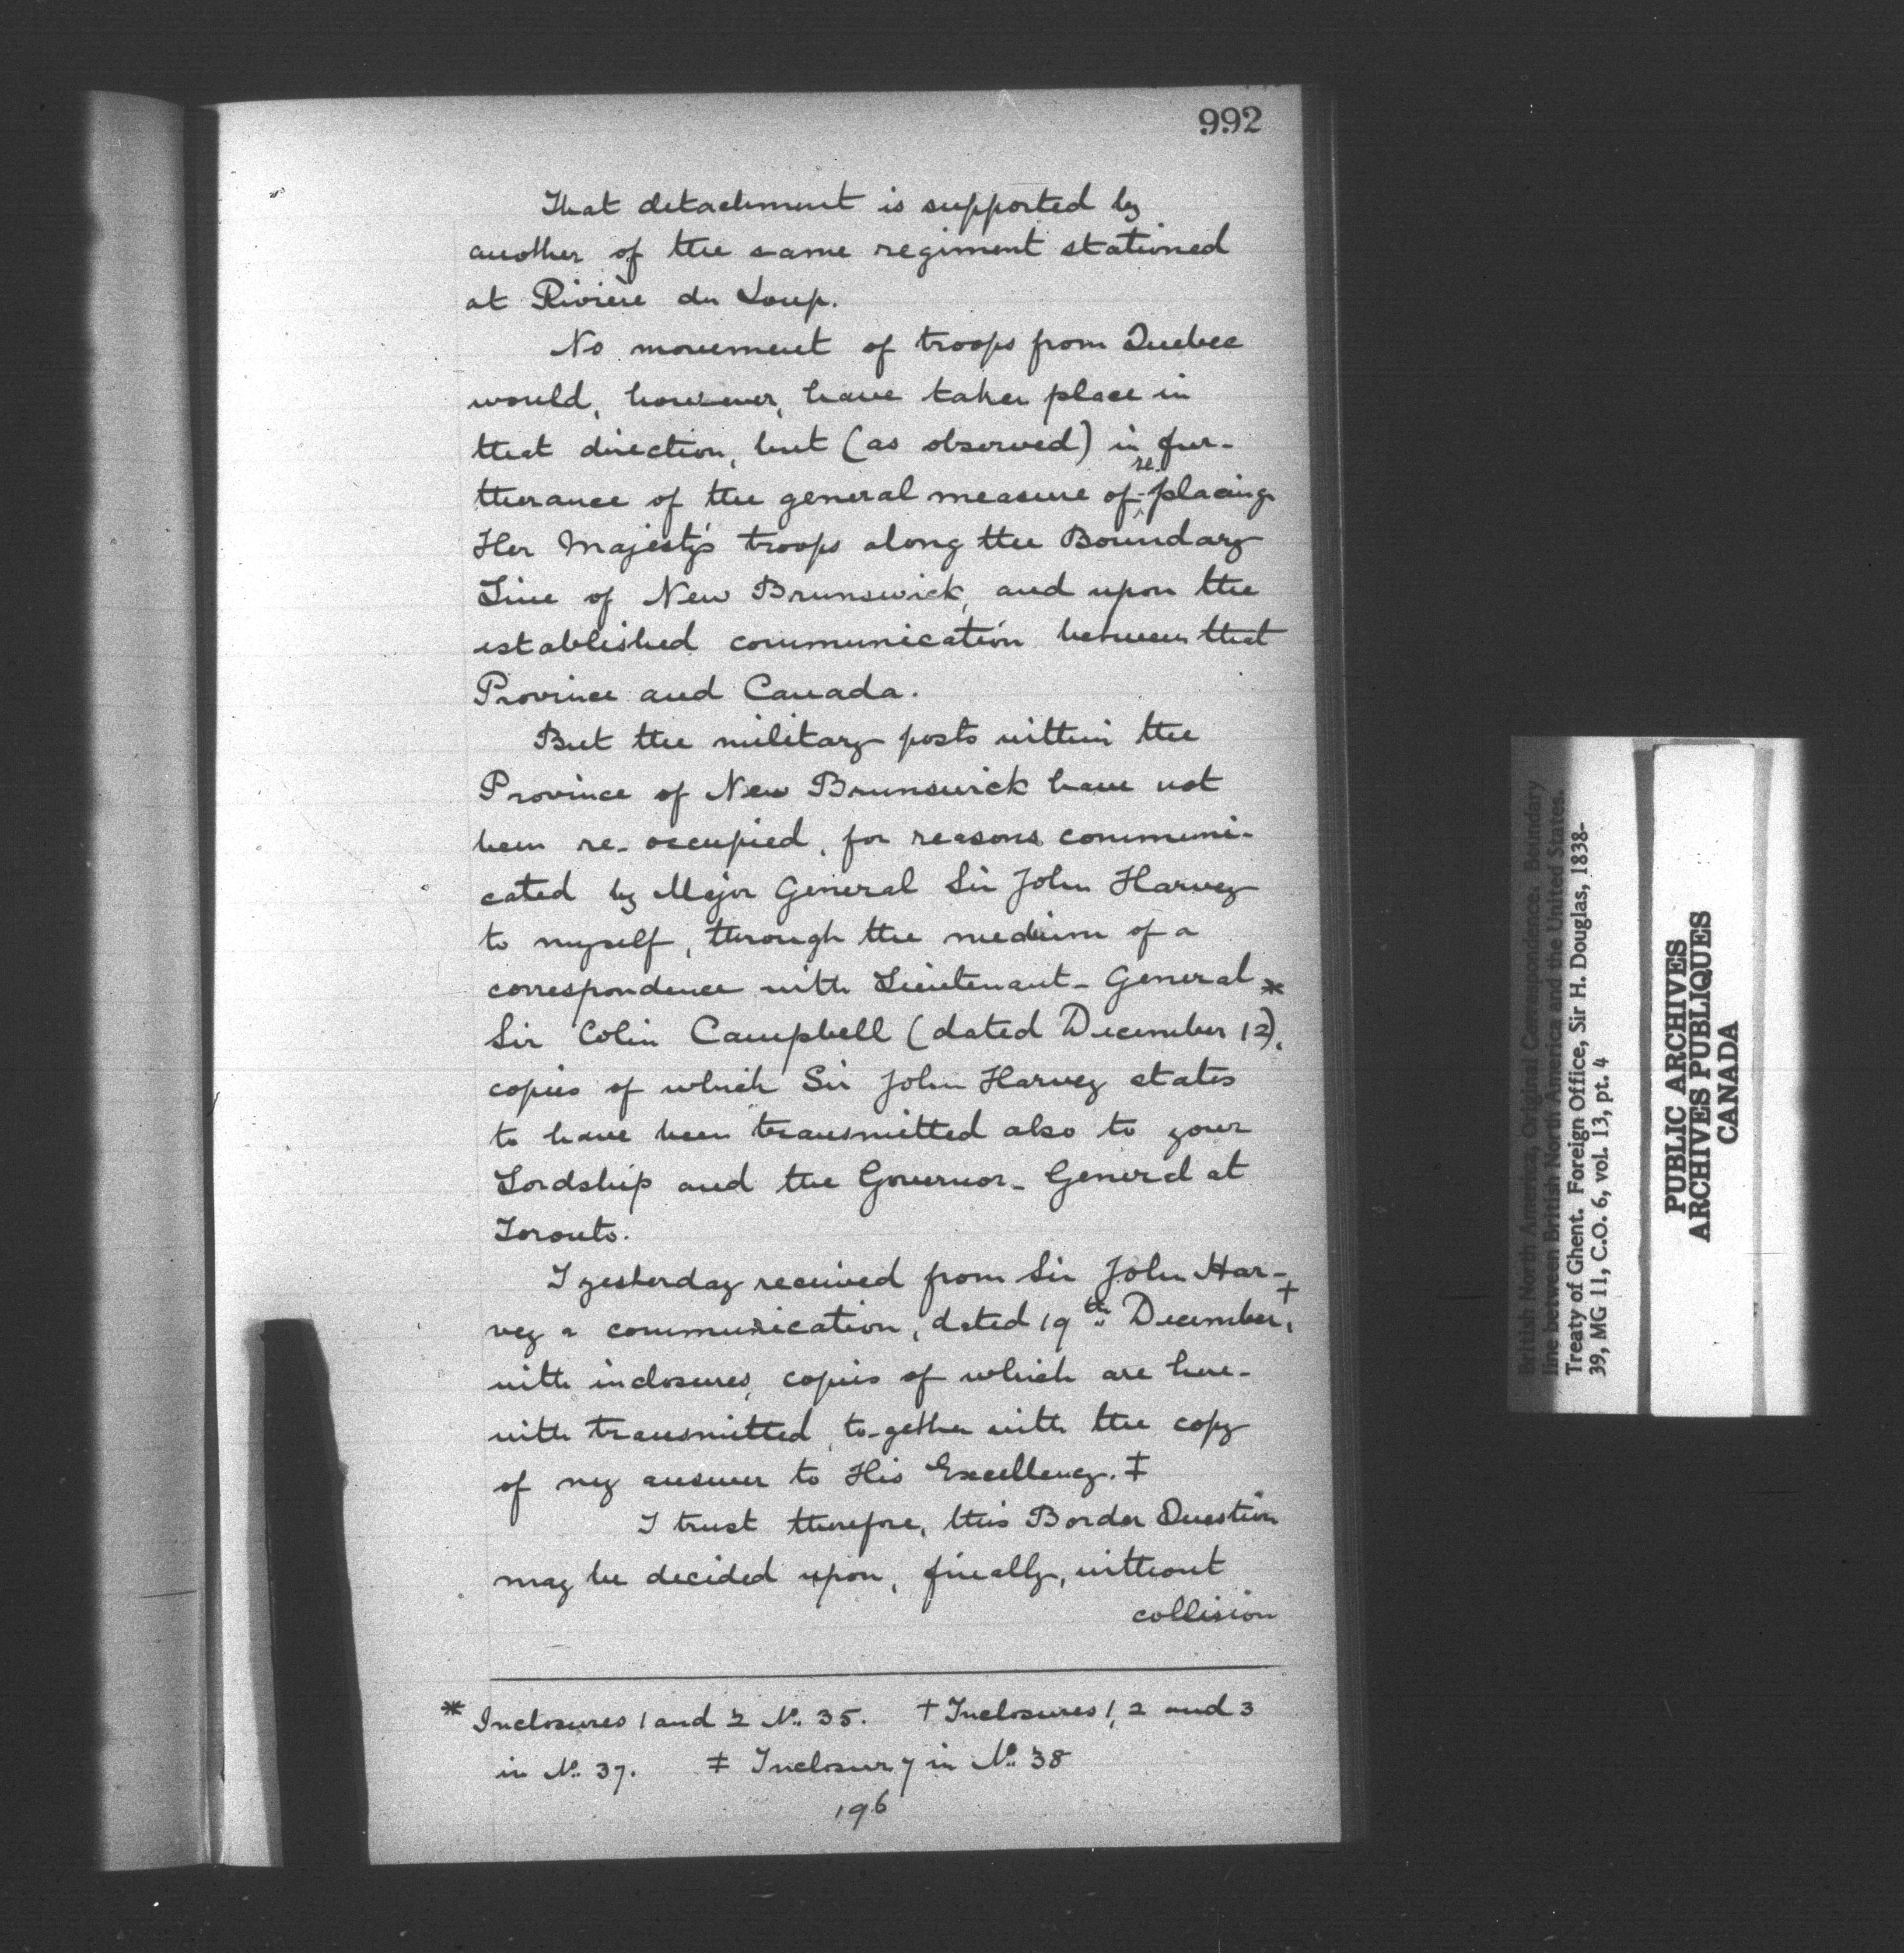 992
That detachment is supported by
another of the same regiment stationed
at Rivière du Loup.
No movement of troops from Quebec
would, however, have taken place in
that direction, but (as observed) in fur-
re-
therance of the general measure of placing
Her Majesty's troops along the Boundary
Line of New Brunswick, and upon the
established communication between that
Province and Canada.
But the military posts within the
Province of New Brunswick have not
been re-occupied, for reasons communi-
cated by Major General Sir John Harvey
to myself, through the medium of a
correspondence with Lieutenant-General *
Sir Colin Campbell (dated December 12),
copies of which Sir John Harvey states
to have been transmitted also to your
Lordship and the Governor-General at
Toronto.
I yesterday received from Sir John Har-
vey a communication, dated 19th December, +
with inclosures, copies of which are here-
with transmitted, to-gether with the copy
of my answer to His Excellency. ‡
I trust therefore, this Border Question
may be decided upon, finally, without
collision
* Inclosures 1 and 2 No. 35. † Inclosures 1, 2 and 3
in No. 37. ‡ Inclosure 7 in No. 38
196
British North America, Original Correspondence. Boundary
line between British North America and the United States.
Treaty of Ghent. Foreign Office, Sir H. Douglas, 1838-
39, MG 11, C.O. 6, vol. 13, pt. 4
PUBLIC ARCHIVES
ARCHIVES PUBLIQUES
CANADA